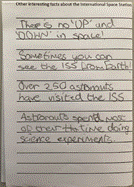 Other interesting facts about the International Space Station
There is no 'UP' and
'DOWN' in space!
Sometimes you can
see the ISS from Earth!
Over 250 astronauts
have visited the ISS
Astronauts spend most
of their time doing
science experiments